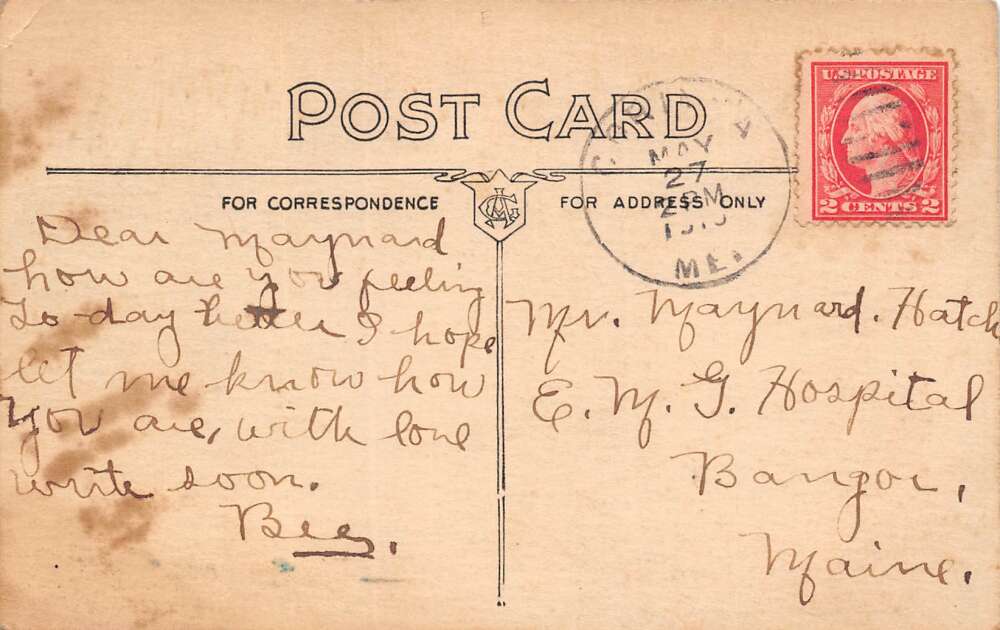 POST CARD
FOR CORRESPONDENCE
FOR ADDRESS ONLY
U.S. POSTAGE
2 CENTS 2
MAY
27
2 PM
ME.
Dear Maynard
how are you feeling
to-day better I hope
let me know how
you are, with love
write soon.
Bee.
Mr. Maynard. Hatch
E. M. G. Hospital
Bangor,
Maine.